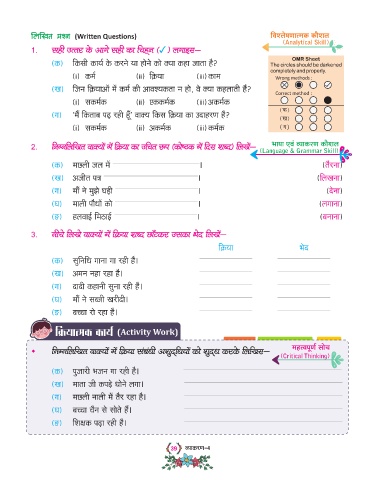 लिखित प्रश्न (Written Questions)
विश्लेषणात्मक कौशल
(Analytical Skill)
1. सही उत्तर के आगे सही का चिह्न (✓) लगाइए—
(क) किसी कार्य के करने या होने को क्या कहा जाता है?
(i) कर्म (ii) क्रिया (iii) काम
(ख) जिन क्रियाओं में कर्म की आवश्यकता न हो, वे क्या कहलाती हैं?
(i) सकर्मक (ii) एककर्मक (iii) अकर्मक
(ग) 'मैं किताब पढ़ रही हूँ' वाक्य किस क्रिया का उदाहरण है?
(i) सकर्मक (ii) अकर्मक (iii) कर्मक
OMR Sheet
The circles should be darkened
completely and properly.
Wrong methods :
Correct method :
(क)
(ख)
(ग)
2. निम्नलिखित वाक्यों में क्रिया का उचित रूप (कोष्ठक में दिए शब्द) लिखें—
भाषा एवं व्याकरण कौशल
(Language & Grammar Skill)
(क) मछली जल में । (तैरना)
(ख) अजीत पत्र । (लिखना)
(ग) माँ ने मुझे घड़ी । (देना)
(घ) माली पौधों को । (लगाना)
(ङ) हलवाई मिठाई । (बनाना)
3. नीचे लिखे वाक्यों में क्रिया शब्द छाँटकर उसका भेद लिखें—
क्रिया भेद
(क) सुनिधि गाना गा रही है।
(ख) अमन नहा रहा है।
(ग) दादी कहानी सुना रही हैं।
(घ) माँ ने सब्जी खरीदी।
(ङ) बच्चा रो रहा है।
क्रियात्मक कार्य (Activity Work)
• निम्नलिखित वाक्यों में क्रिया संबंधी अशुद्धियों को शुद्ध करके लिखिए—
महत्वपूर्ण सोच
(Critical Thinking)
(क) पुजारी भजन गा रही है।
(ख) माता जी कपड़े धोने लगा।
(ग) मछली नाली में तैर रहा है।
(घ) बच्चा चैन से सोते हैं।
(ङ) शिक्षक पढ़ा रही हैं।
39 व्याकरण–4